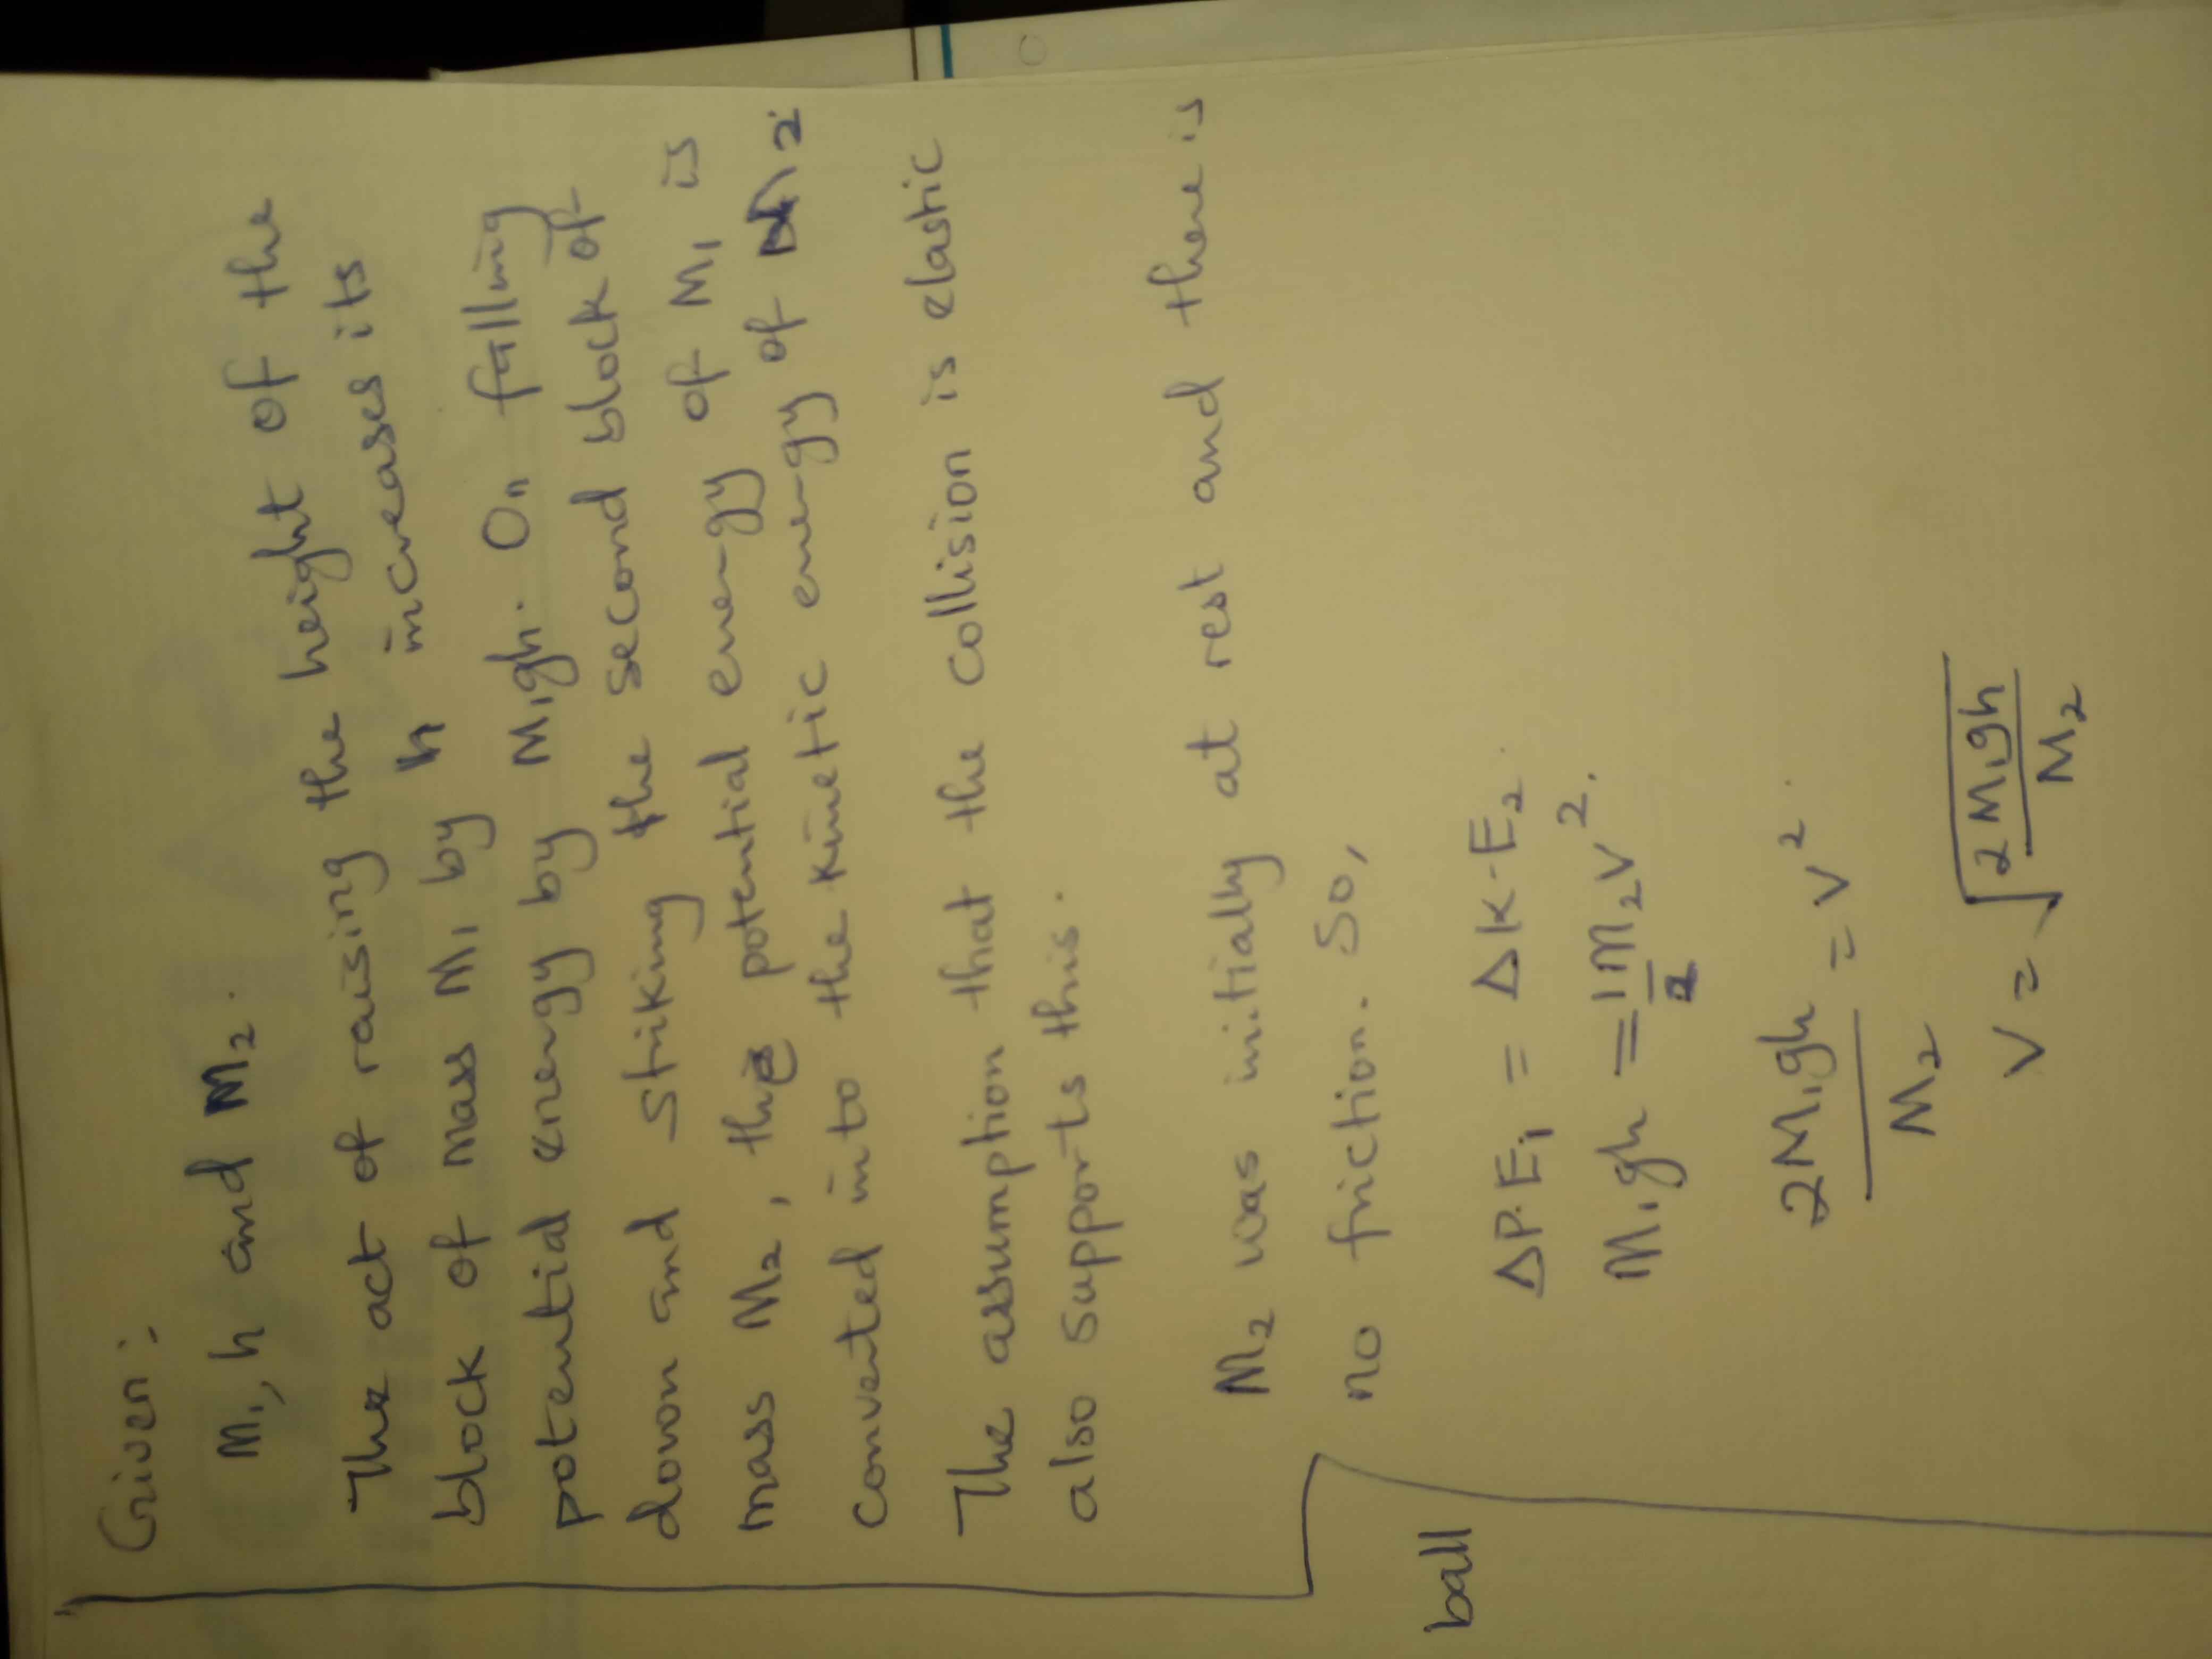 Given:
M₁, h and M₂.
The act of raising the height of the
block of mass M₁ by h increases its
potential energy by M₁gh. On falling
down and striking the second block of
mass M₂, the potential energy of M₁ is
converted into the kinetic energy of M₂
The assumption that the collision is elastic
also supports this.
M₂ was initially at rest and there is
no friction. So,
ball
ΔP.E₁ = ΔK.E₂.
M₁gh = 1/2 M₂v².
2M₁gh/M₂ = v².
v = √(2M₁gh/M₂)